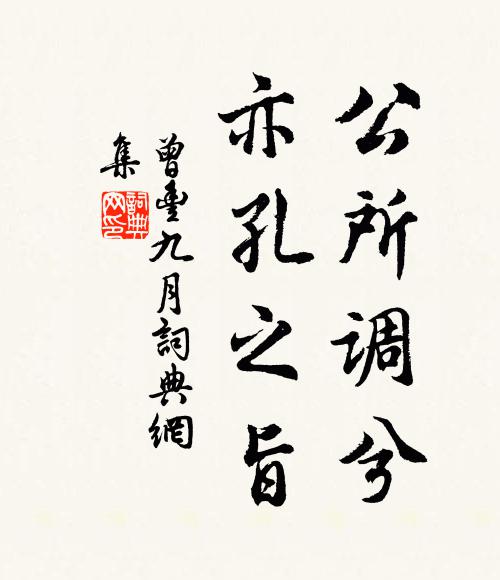 公所调兮
亦孔之旨
曾豐九月詞典網
集
詞典
网印